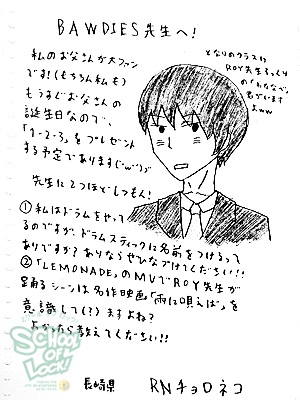 BAWDIES先生へ!
私のお父さんが大ファン
です!(もちろん私も)
もうすぐお父さんの
誕生日なので、
「1-2-3」をプレゼント
する予定であります(・ω・)ゞ
先生に2つほどしつもん!
となりのクラスに
ROY先生そっくり
の「わたなべ」
君がいます
よww
①私はドラムをやって
るのですが、ドラムスティックに名前をつけるって
ありですか?ありならぜひなづけてくだちい!!
②「LEMONADE」のMVでROY先生が
踊るシーンは名作映画「雨に唄えば」を
意識して(?)ますよね?
よかったら教えてくだちい!!
SCHOOL OF LOCK!
長崎県
RNチョロネコ